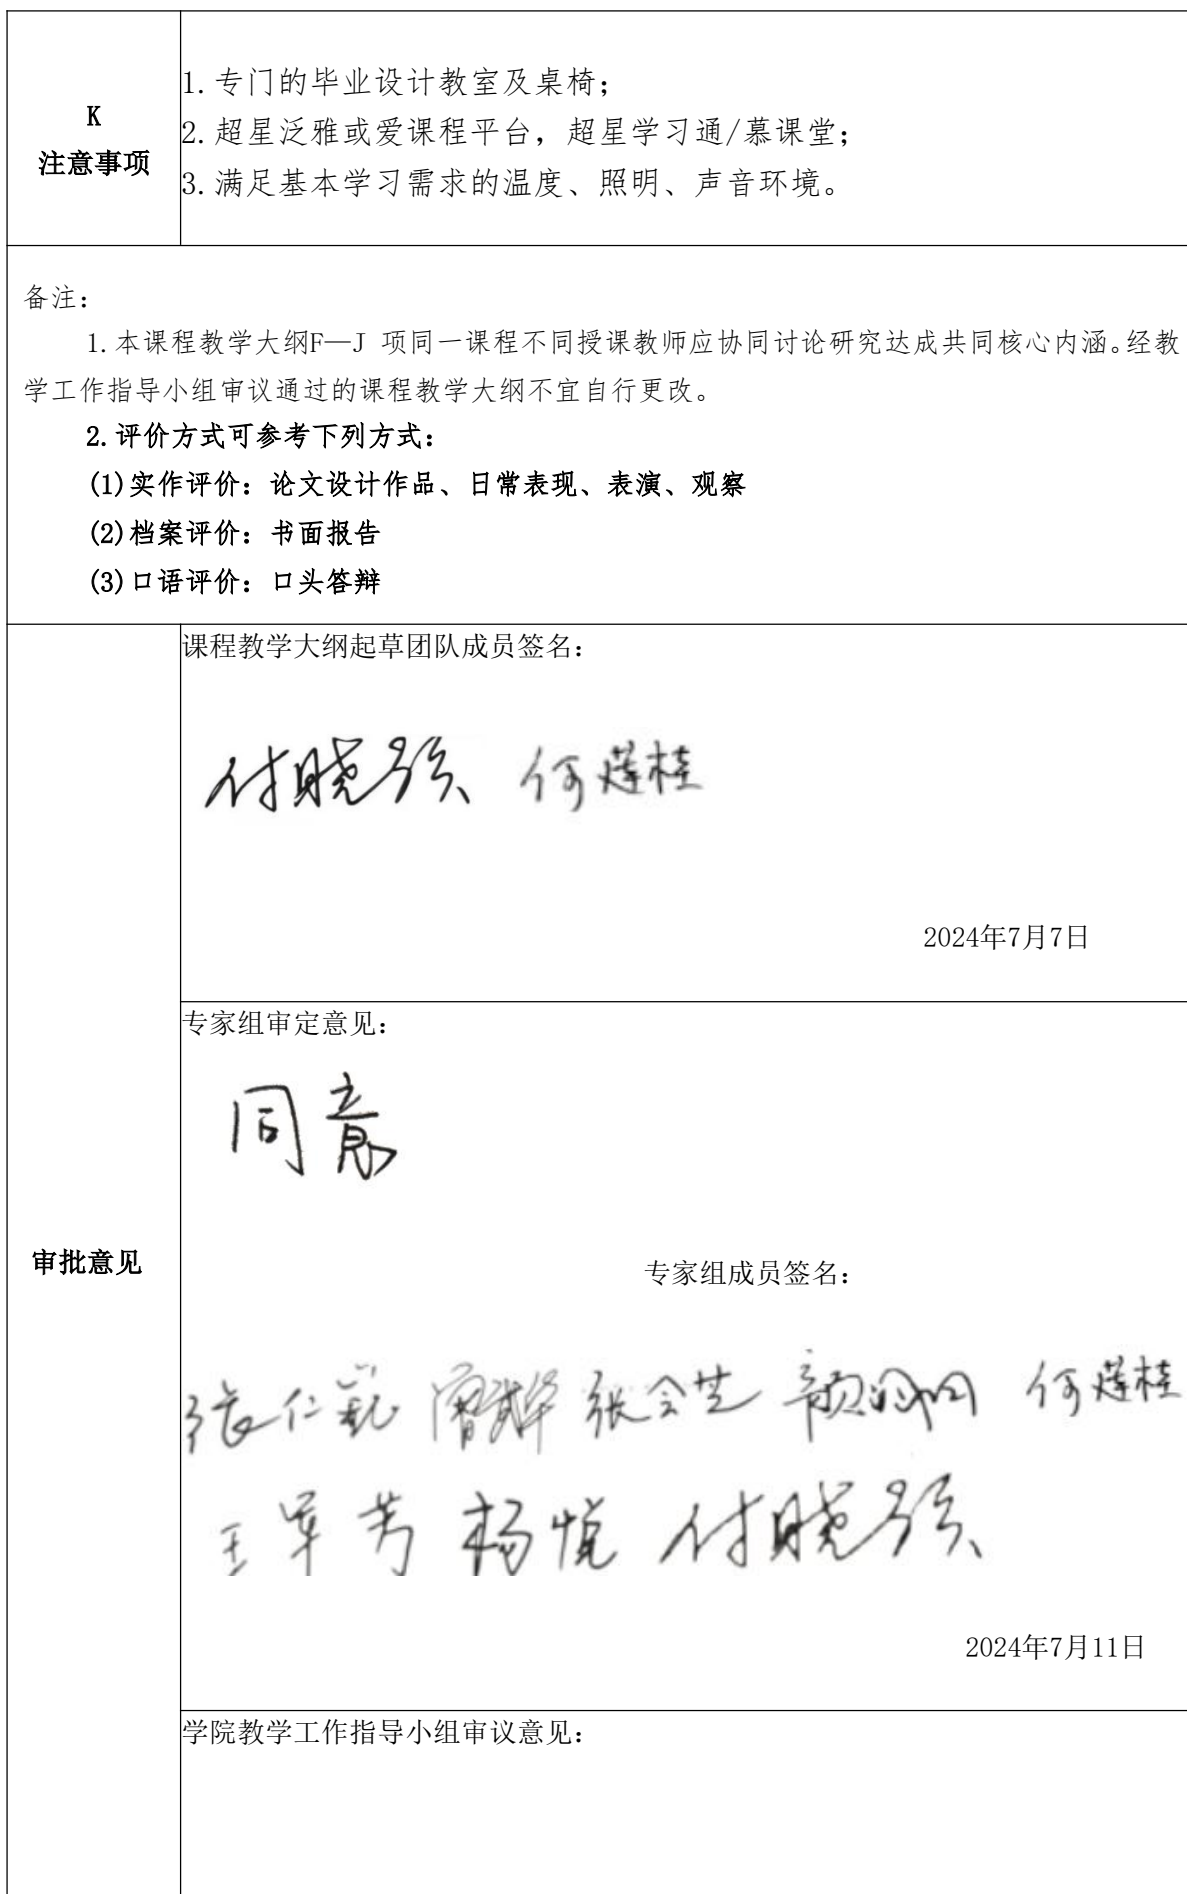 K
注意事项
1.专门的毕业设计教室及桌椅；
2.超星泛雅或爱课程平台，超星学习通/慕课堂；
3.满足基本学习需求的温度、照明、声音环境。
备注：
1.本课程教学大纲F—J 项同一课程不同授课教师应协同讨论研究达成共同核心内涵。经教
学工作指导小组审议通过的课程教学大纲不宜自行更改。
2.评价方式可参考下列方式：
(1)实作评价：论文设计作品、日常表现、表演、观察
(2)档案评价：书面报告
(3)口语评价：口头答辩
审批意见
课程教学大纲起草团队成员签名：
付晓 何莲桂
2024年7月7日
专家组审定意见：
同意
专家组成员签名：
张仁 张会芝 何莲桂
王军芳 杨悦 付晓
2024年7月11日
学院教学工作指导小组审议意见：